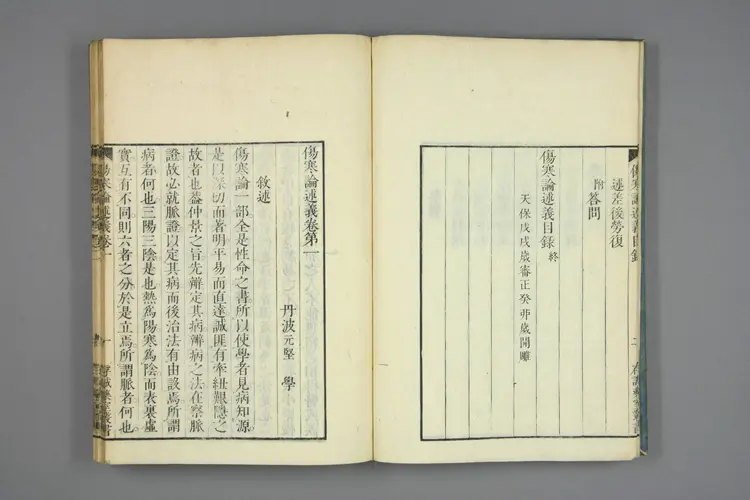 傷寒論述義目錄
二
存誠藥室叢書
述差後勞復
附答問
傷寒論述義目錄終
天保戊戌歲審正癸卯歲開雕
傷寒論述義卷第一
丹波元堅 學
敘述
傷寒論一部全是性命之書所以使學者見病知源
是以深切而著明平易而直達誠匪有牽紐艱隱之
故者也蓋仲景之旨先辨定其病辨病之法在察脈
證故必就脈證以定其病而後治法有由設焉所謂
病者何也三陽三陰是也熱爲陽寒爲陰而表裏虛
實互有不同則六者之分於是立焉所謂脈者何也
傷寒論述義卷一
一
存誠藥室叢書